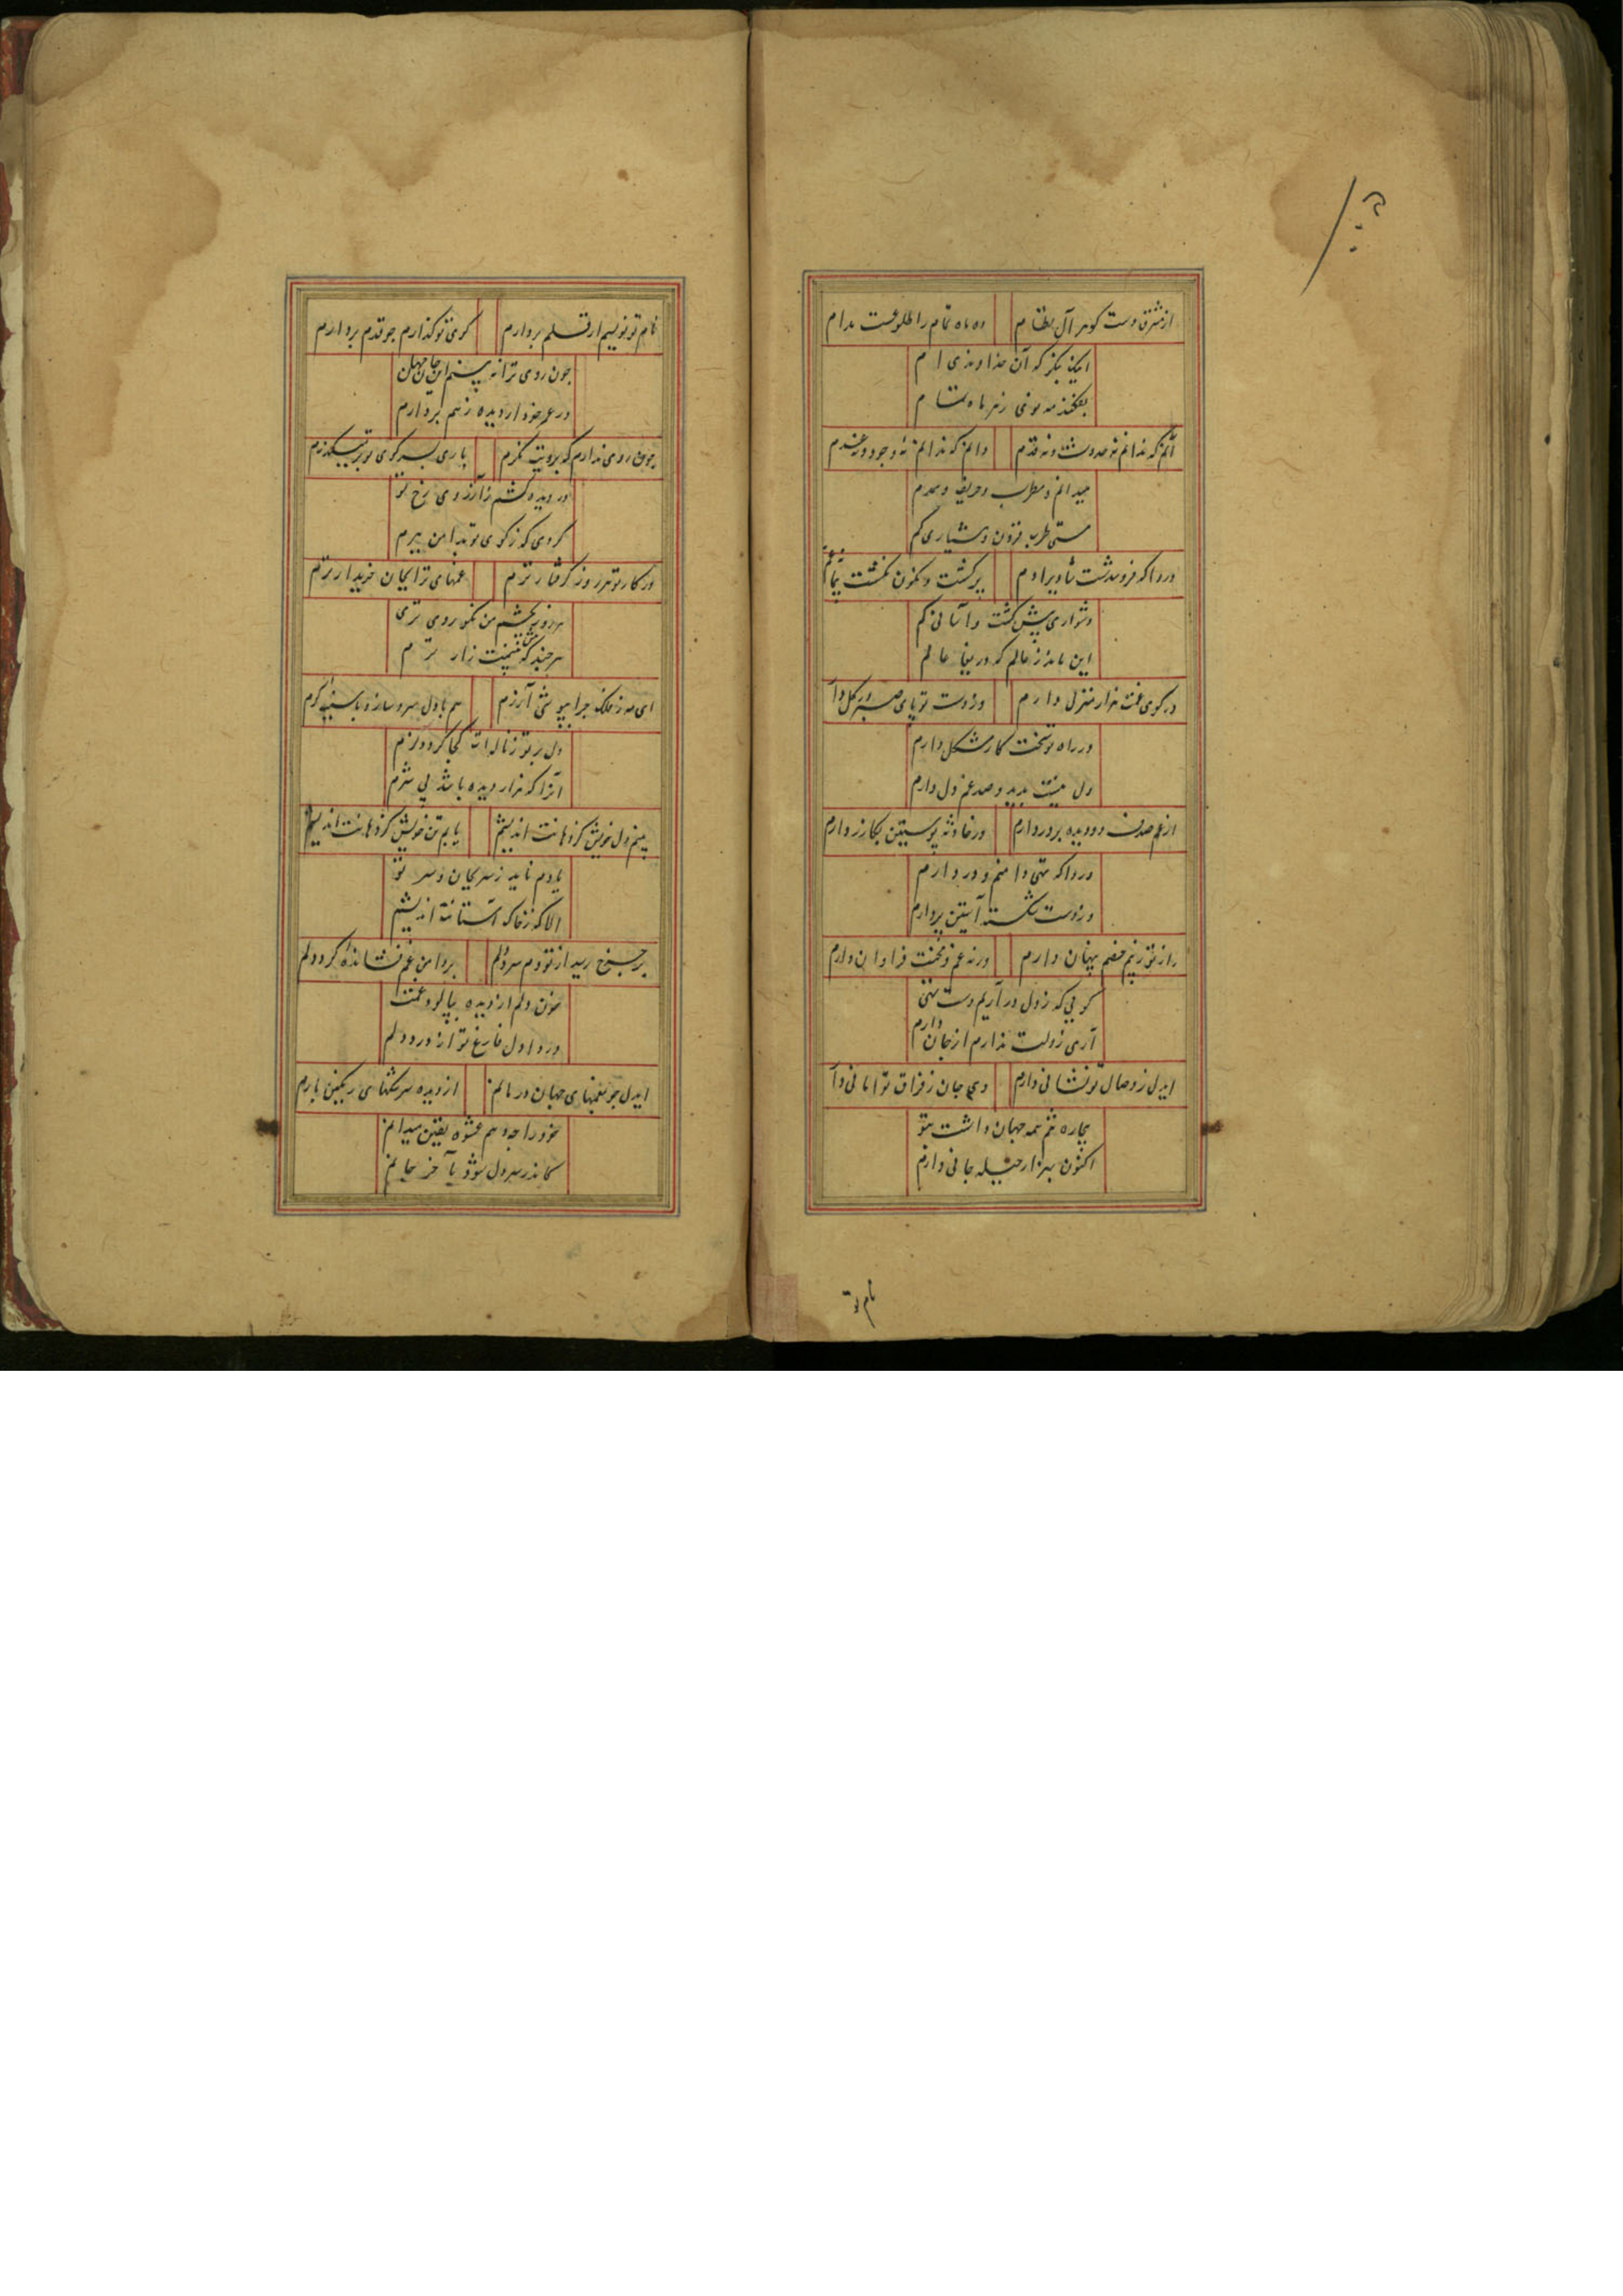 از مشرق دست گوهر آل نظام
ده ماه تمام را طلوعست مدام
اینک بنگر که آن خداوندی ام
بفکند مه نوی زهر ماه تمام
آنم که ندانم نه حدوث و نه قدم
دانم که ندانم نه وجود و نه عدم
میدانم و مطرب و حریف و همدم
مستی طرب فزون و هشیاری کم
دردا که فرو شدست شادی را دم
برگشت و کنون نمیشت
دشواری بیش گشت و آسانی کم
این ماند ز عالم که دریغا عالم
در کوی غمت هزار منزل دارم
وز دست تو پای صبر در گل دا
در راه تو سخت کار مشکل دارم
دل نیست پدید و صد غم دل دارم
از غم صدف دو دیده پر در دارم
در حادثه پوستین بگازر دارم
دردا که تهی دامنم و در دارم
وز دست شکسته آستین پر دارم
راز تو ز بیم خصم پنهان دارم
ورنه غم و محنت فراوان دارم
گویی که ز دل در آریم دست تهی
آری ز دلت ندارم از جان دارم
ایدل ز وصال تو نشانی دارم
وی جان ز فراق تو امانی دا
بیچاره تنم همه جهان داشت بتو
اکنون بهزار حیله جانی دارم
نام تو
نام تو نویسم ار قلم بردارم
کوی تو گذارم چو قدم بردارم
جون روی ترا نه بینم این جان جهان
در عمر خود ار دیده ز هم بردارم
جون روی ندارم که برویت نگرم
باری بسر کوی تو بر میگذرم
در دیده کشم ز آرزوی رخ تو
گردی که ز کوی تو بدامن ببرم
در کار تو هر روز گرفتار ترم
غمهای ترا بجان خریدار ترم
هر روز بچشم من نکو روی تری
هر چند که بیشت زار ترم
ای مه ز فلک جرا بپوشی آزرم
هم با دل سرد سازد با سینه گرم
دل بر تو ز ناله ات کجا گردد نرم
آنرا که هزار دیده باشد بی شرم
بینم دل خویش کز دهانت اندیشم
یابم تن خویش کز دهانت اندیشم
یادم ناید ز سر بجان و سر تو
الا که ز خاک آستانت اندیشم
بر جرخ رسید از تو دم سرد دلم
بر دامن غم فشانده گرد دلم
خون دلم از دیده بپالود غمت
دردا دل فارغ تو از درد دلم
ایدل جو بغمهای جهان در مانم
از دیده سرشکهای رنگین بارم
خود را جه دهم عشوه یقین میدانم
کاندر سر دل شود بآخر جانم